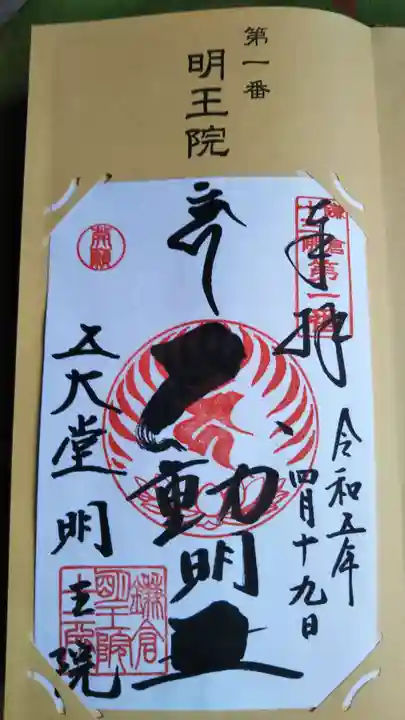 第一番
明王院
奉拝
鎌倉
第一番
令和五年
四月十九日
不動明王
発願
五大堂 明王院
鎌倉
明王院